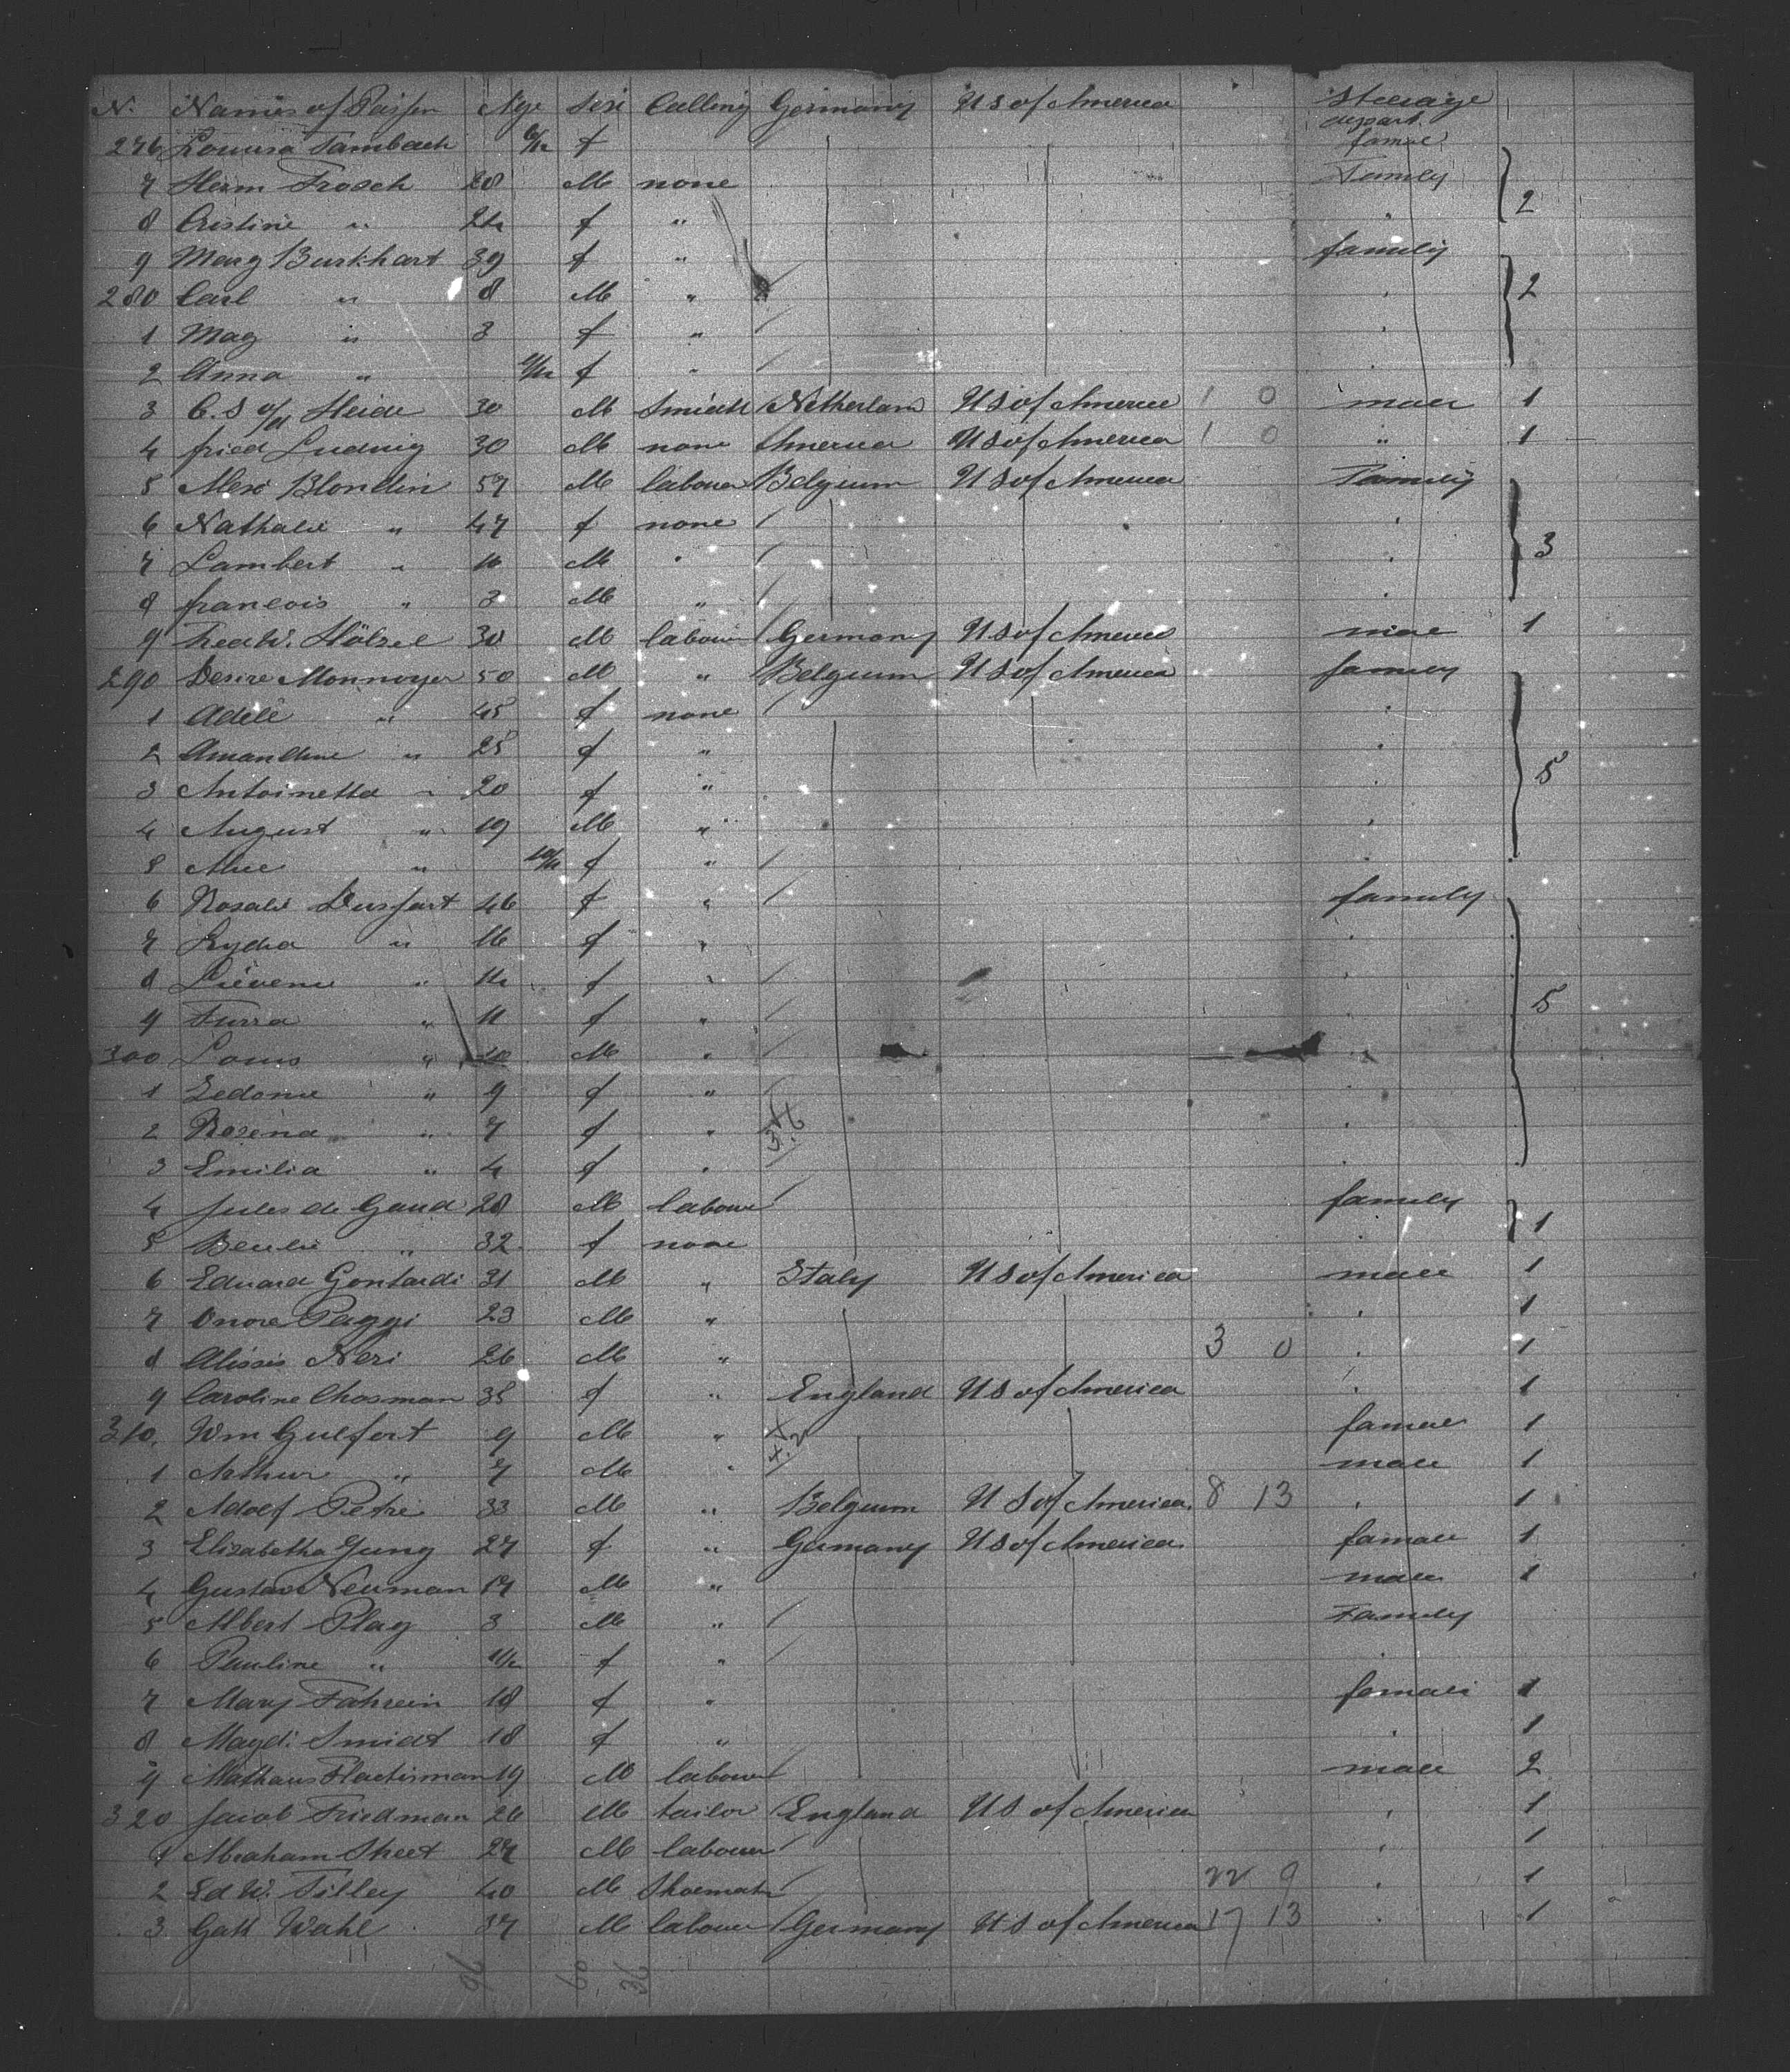 N. Names of Passen Age Sex Calling Germany US of America Steerage
depart.
276 Louisa Tambach 6/12 f famae
7 Herm Frosch 28 M none Family
8 Cristine " 24 f " " 2
9 Marg Burkhart 39 f " family
280 Carl " 8 M " " 2
1 Mag " 3 f " "
2 Anna " f " "
3 C. S v/d Heide 30 M Smidt Netherland US of America 1 0 mael 1
4 fried Ludwig 30 M none America US of America 1 0 " 1
5 Alex Blondin 57 M labouer Belgium US of America Family
6 Nathalie " 47 f none "
7 Lambert " 16 M " " 3
8 francois " 3 M " "
9 Hölzel 30 M labour Germany US of America mae 1
290 Desire Monnoyer 50 M " Belgium US of America family
1 Adele " 45 f none "
2 Amandine " 25 f " "
3 Antoinetta " 20 f " " 5
4 August " 19 M " "
5 Alice " 10/12 f " "
6 Rosalie Dusfart 46 f " family
7 Lydia " 16 f " "
8 " 14 f " "
9 " 11 f " " 5
300 Louis " 10 M " "
1 " 9 f " "
2 Rosina " 7 f " "
3 Emilia " 4 f " "
4 Jules de Gand 28 M labour family
5 " 32 f none " 1
6 Eduard Gontardi 31 M " Italy US of America male 1
7 Onore Paggi 23 M " " 1
8 Alissis Neri 26 M " 3 0 " 1
9 Caroline Chosman 35 f " England US of America " 1
310 Wm Gulfort 9 M " famae 1
1 Arthur " 7 M " male 1
2 Adolf Petre 33 M " Belgium US of America. 8 13 " 1
3 Elisabetha Jung 27 f " Germany US of America. famale 1
4 Gustav Neuman 17 M " male 1
5 Albert Play 3 M " Family
6 Pauline " 11/12 f " "
7 Mary Fahrein 18 f " female 1
8 Magd: Smidt 18 f " " 1
9 Mathaus 19 M labour male 2
320 Jacob Friedman 26 M tailor England US of America " 1
1 Abraham Street 27 M labouer " 1
2 Ed W. Tilley 40 M Shoemak 22 9 " 1
3 Gatt Wahl 37 M labouer Germany US of America 17 13 " 1
96 60 36